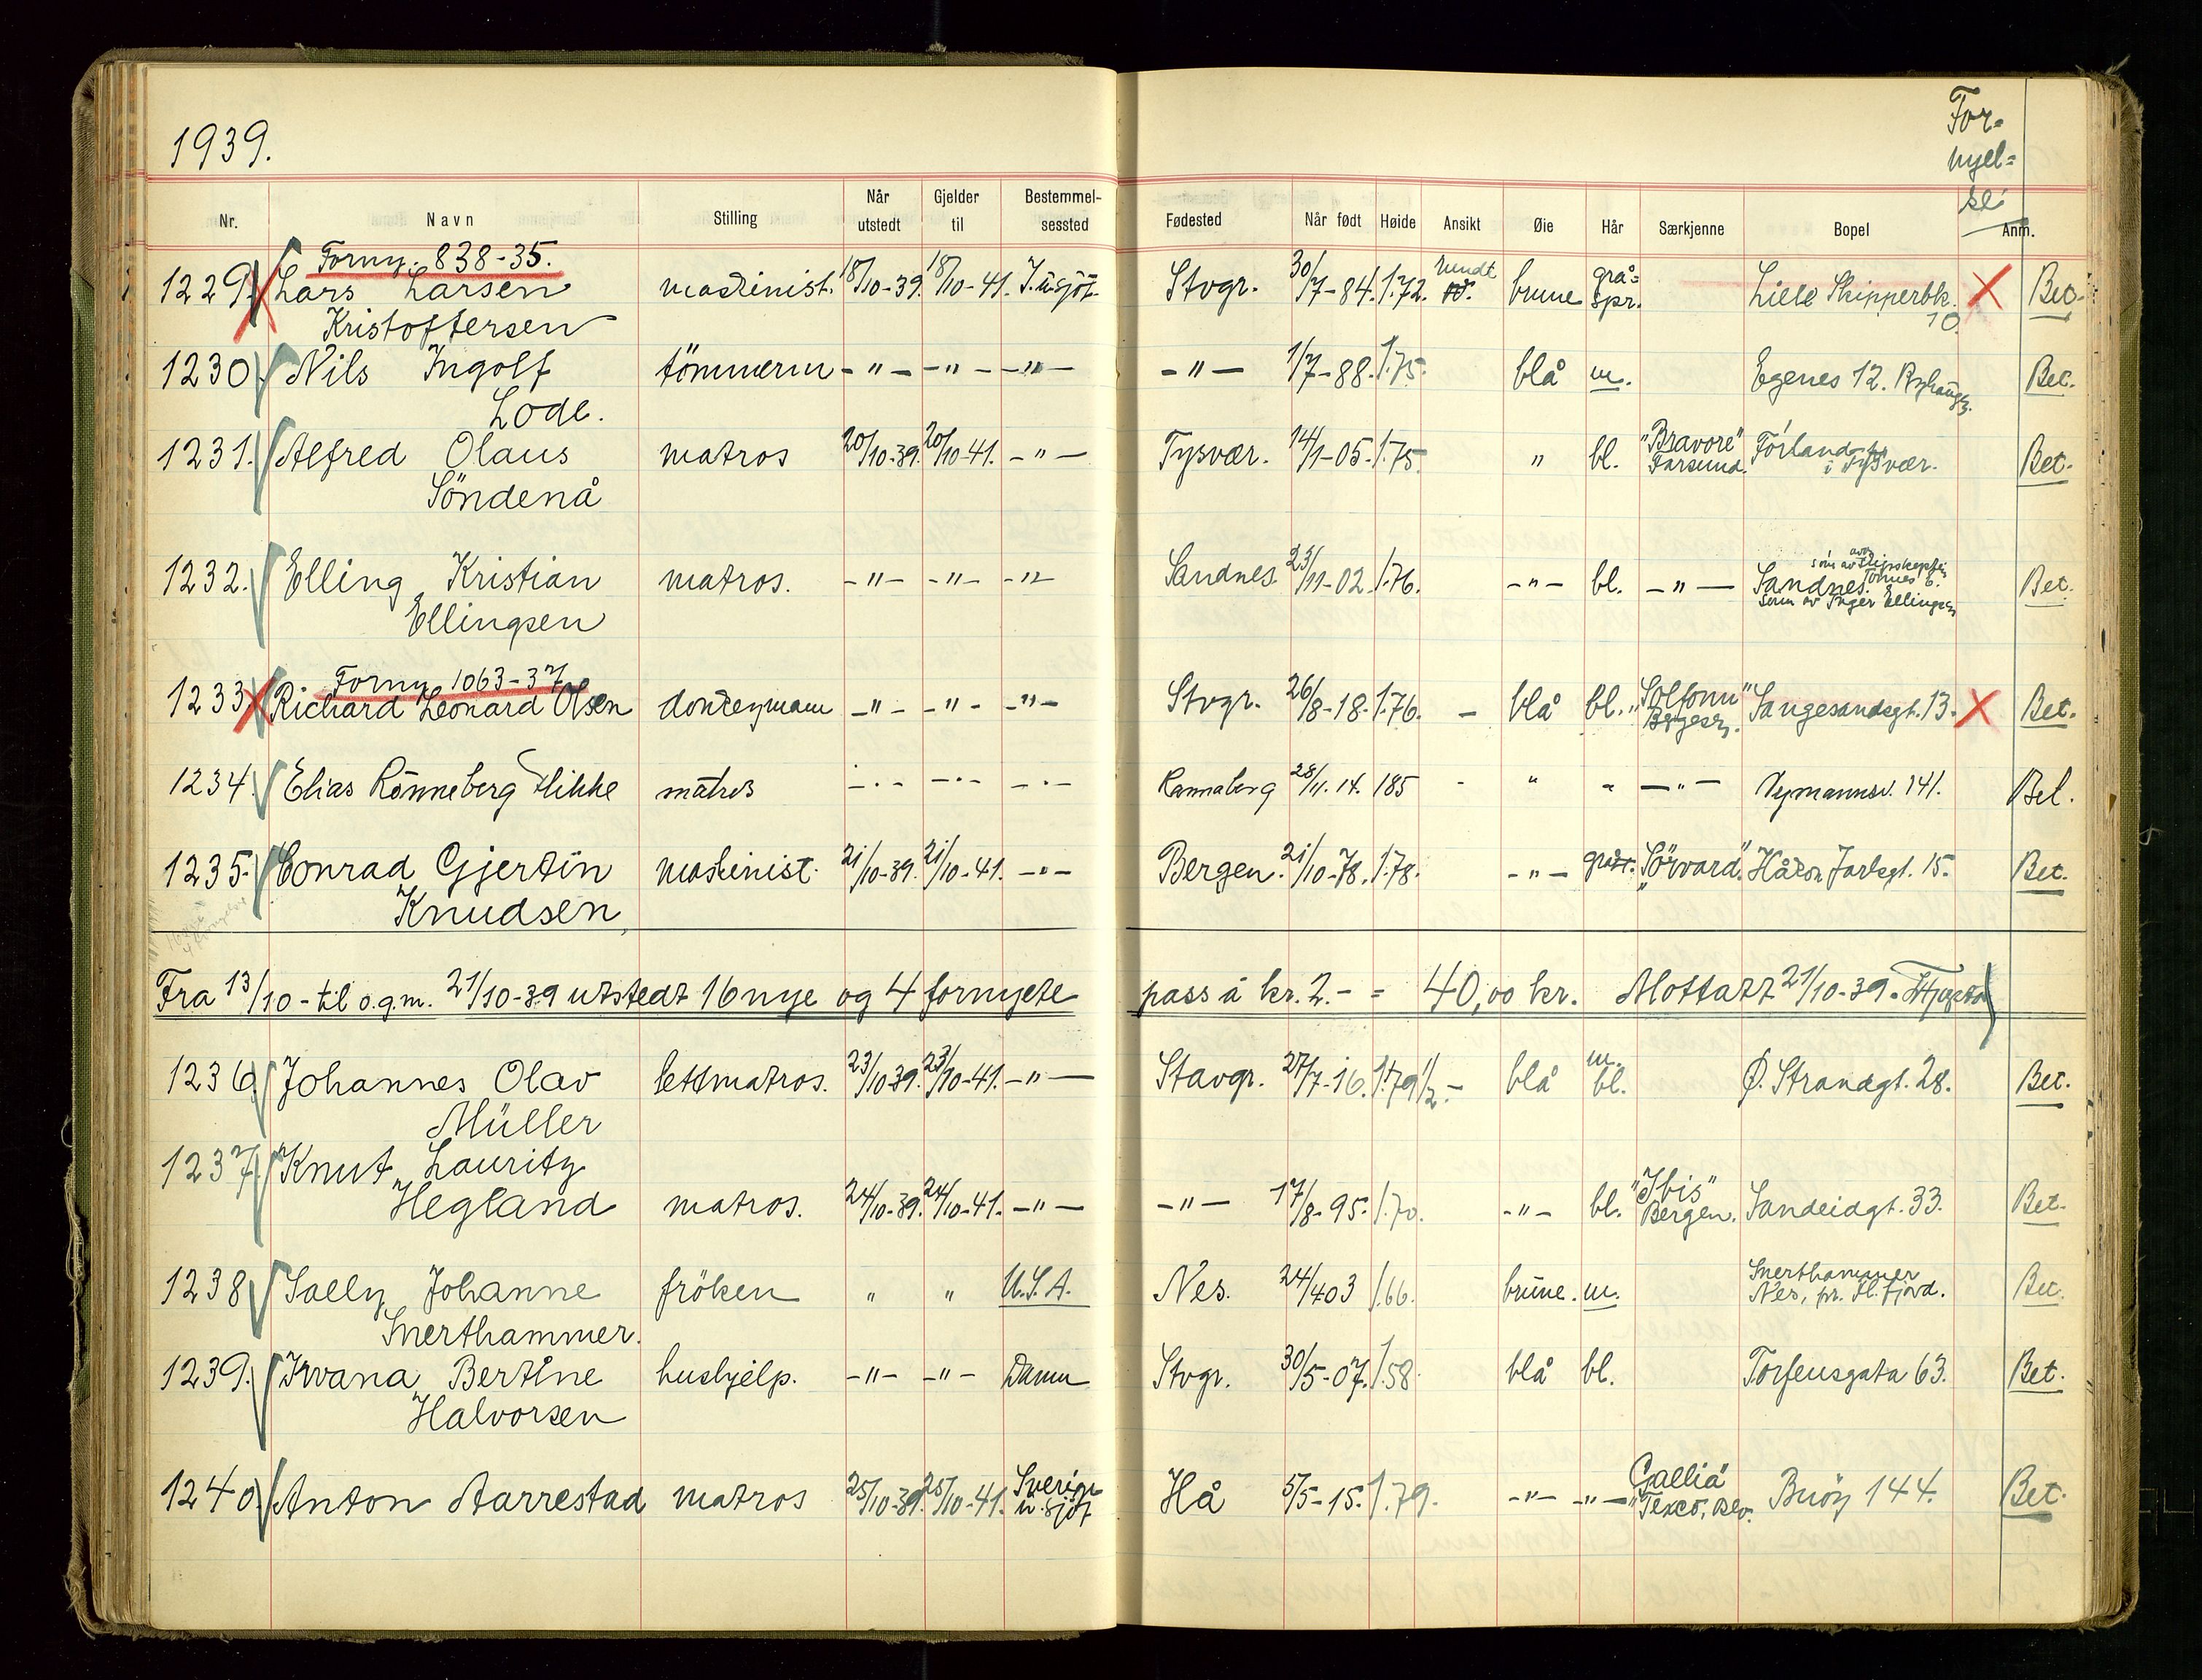 1939.
For-
nyel-
se
Nr. Navn Stilling Når utstedt Gjelder til Bestemmel-sessted Fødested Når født Høide Ansikt Øie Hår Særkjenne Bopel Anm.
Forny. 838-35.
1229. Lars Larsen maskinist. 18/10-39. 18/10-41. Stvgr. 30/7-84. 1.72. rundt brune grå-spr. Lille Skipperbk. 10. Bet.
Kristoffersen
1230 Nils Ingolf tömmerm -"- -"- -"- -"- 1/7-88. 1.75. blå m. Egenes 12. Bet.
Lode.
1231. Alfred Olaus matros 20/10-39. 20/10-41. -"- Tysvær. 14/1-05. 1.75. " bl. "Bravore" Farsund. Förland i Tysvær. Bet.
Söndenå
1232. Elling Kristian matros. -"- -"- -"- Sandnes 23/11-02. 1.76. -"- bl. -"- Sandnes. Bet.
Ellingsen sönn av Inger Ellingsen
Forny 1063-37
1233 Richard Leonard Olsen donkeymann -"- -"- -"- Stvgr. 26/8-18. 1.76. - blå bl. "Solfonn" Bergesen. Langesandsgt. 13. Bet.
1234. Elias Rönneberg Hikke matros -"- -"- -"- Rannaberg 28/11. 14. 185 - " - -"- Nymannsv. 141. Bet.
1235. Conrad Gjertin maskinist. 21/10-39. 21/10-41. -"- Bergen. 21/10-78. 1.78. -"- "Sörvard." Håkon Jarlsgt. 15. Bet.
Knudsen,
Fra 13/10 - til o.g.m. 21/10-39 utstedt 16 nye og 4 fornyete pass á kr. 2.- = 40,00 kr. Mottatt 21/10-39.
1236. Johannes Olav lettmatros. 23/10-39. 23/10-41. -"- Stavgr. 27/7-16. 1.79 1/2. - blå m. bl. Ø. Strandgt. 28. Bet.
Müller
1237. Knut Lauritz
Hegland matros. 24/10-39. 24/10-41. -"- -"- 17/8-95. 1.70. -"- bl. "Ibis" Bergen. Sandeidgt. 33. Bet.
1238 Solly Johanne fröken " " U.S.A. Ness. 24/4 03 1.66. brune. m. Snerthammer Nes, pr. Hl. fjord. Bet.
Snerthammer.
1239. Irvana Bertine hushjelp. -"- -"- Danm Stvgr. 30/5-07. 1.58. blå bl. Torfeusgata 63. Bet.
Halvorsen
1240. Anton Aarrestad matros 25/10-39. 25/10-41. Sverige u. sjöf Hå 5/5-15. 1.79. -"- -"- "Gallia" Buöy 144. Bet.